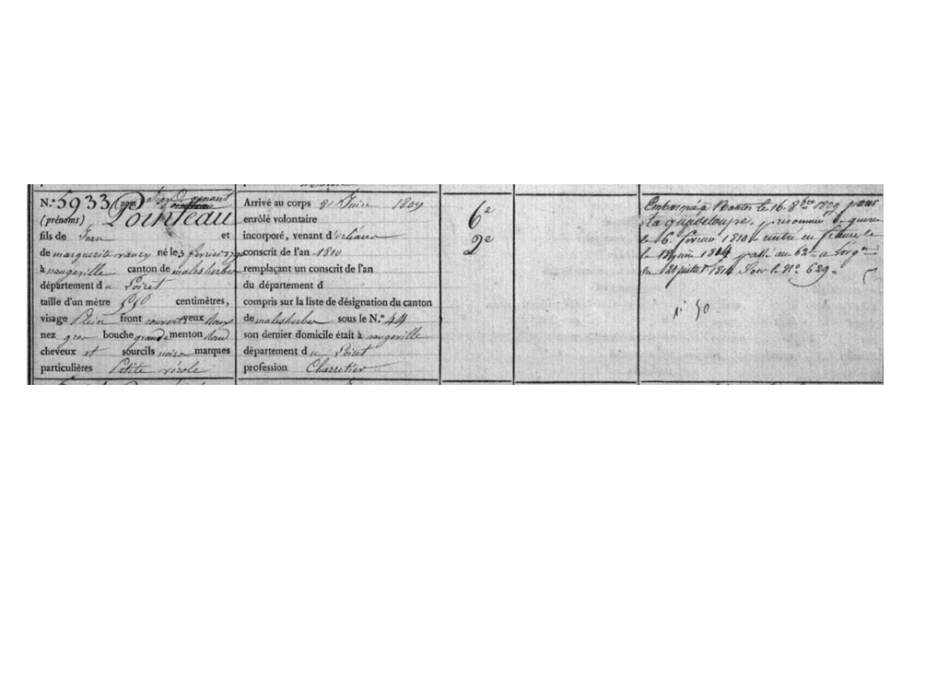 N.º 5933 (nom)
Pointeau
(prénoms)
fils de Jean et
de marguerite né le 3 fevrier
à nangeville canton de malesherbes
département du Loiret
taille d'un mètre 590 centimètres,
visage Plein front couvert yeux
nez gros bouche grande menton rond
cheveux et sourcils noirs marques
particulières Petite vérole
Arrivé au corps Juin 1809
enrôlé volontaire
incorporé, venant d'orléans
conscrit de l'an 1810
remplaçant un conscrit de l'an
du département d
compris sur la liste de désignation du canton
de malesherbes sous le N.º 44
son dernier domicile était à nangeville
département du Loiret
profession Charretier
6e
2e
Embarqué à Nantes le 16 8bre 1809 pour
La guadeloupe, prisonnier de guerre
le 6 fevrier 1810 rentré en france le
le juin 1814 passé au 62e
le juillet 1814 Sous le No 629.